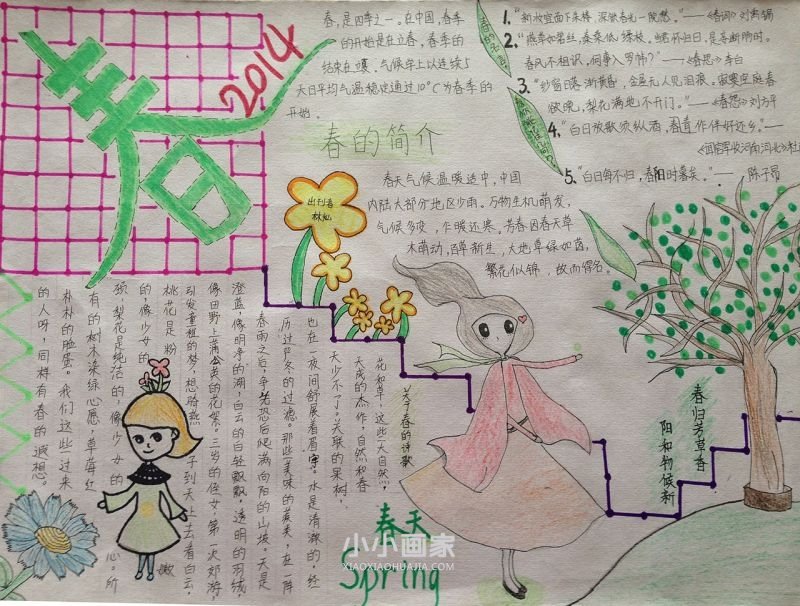 春
2014
春，是四季之一。在中国，春季
的开始是在立春，春季的
结束在立夏。气候学上以连续5
天日平均气温稳定通过10℃为春季的
开始。
春的简介
春的名言
1. "新妆宜面下朱楼，深锁春光一院愁。"——《春词》刘禹锡
2. "燕草如碧丝，秦桑低绿枝。当君怀归日，是妾断肠时。
春风不相识，何事入罗帏？"——《春思》李白
3. "纱窗日落渐黄昏，金屋无人见泪痕。寂寞空庭春
欲晚，梨花满地不开门。"——《春怨》刘方平
4. "白日放歌须纵酒，青春作伴好还乡。"——
《闻官军收河南河北》杜
5. "白日每不归，春阳时暮矣。"—— 陈子昂
春天气候温暖适中，中国
内陆大部分地区少雨。万物生机萌发，
气候多变，乍暖还寒。芳春因春天草
木萌动，百草新生，大地草绿如茵，
繁花似锦，故而得名。
出刊者
林灿
关于春的诗歌
花和草，这些大自然，
天成的杰作，自然和春
天少不了。关联的果树，
也在一夜间舒展着眉宇。水是清澈的，经
历过严冬的过滤。那些美味的菠菜，在一阵
春雨之后，争先恐后爬满向阳的山坡。天是
澄蓝，像明净的湖，白云的白轻飘飘，透明的羽绒，
像田野上蒲公英的花絮。三岁的侄女，第一次郊游，
引发童稚的梦，想骑燕子到天上去看白云，
桃花是粉嫩
的，像少女的心。所
颈，梨花是纯洁的，像少女的
有的树木染绿心愿，草莓红
朴朴的脸蛋。我们这些一过来
的人呀，同样有春的遐想。
春归芳草香
阳和物候新
春天
Spring
小小画家
XIAOXIAOHUAJIA.COM